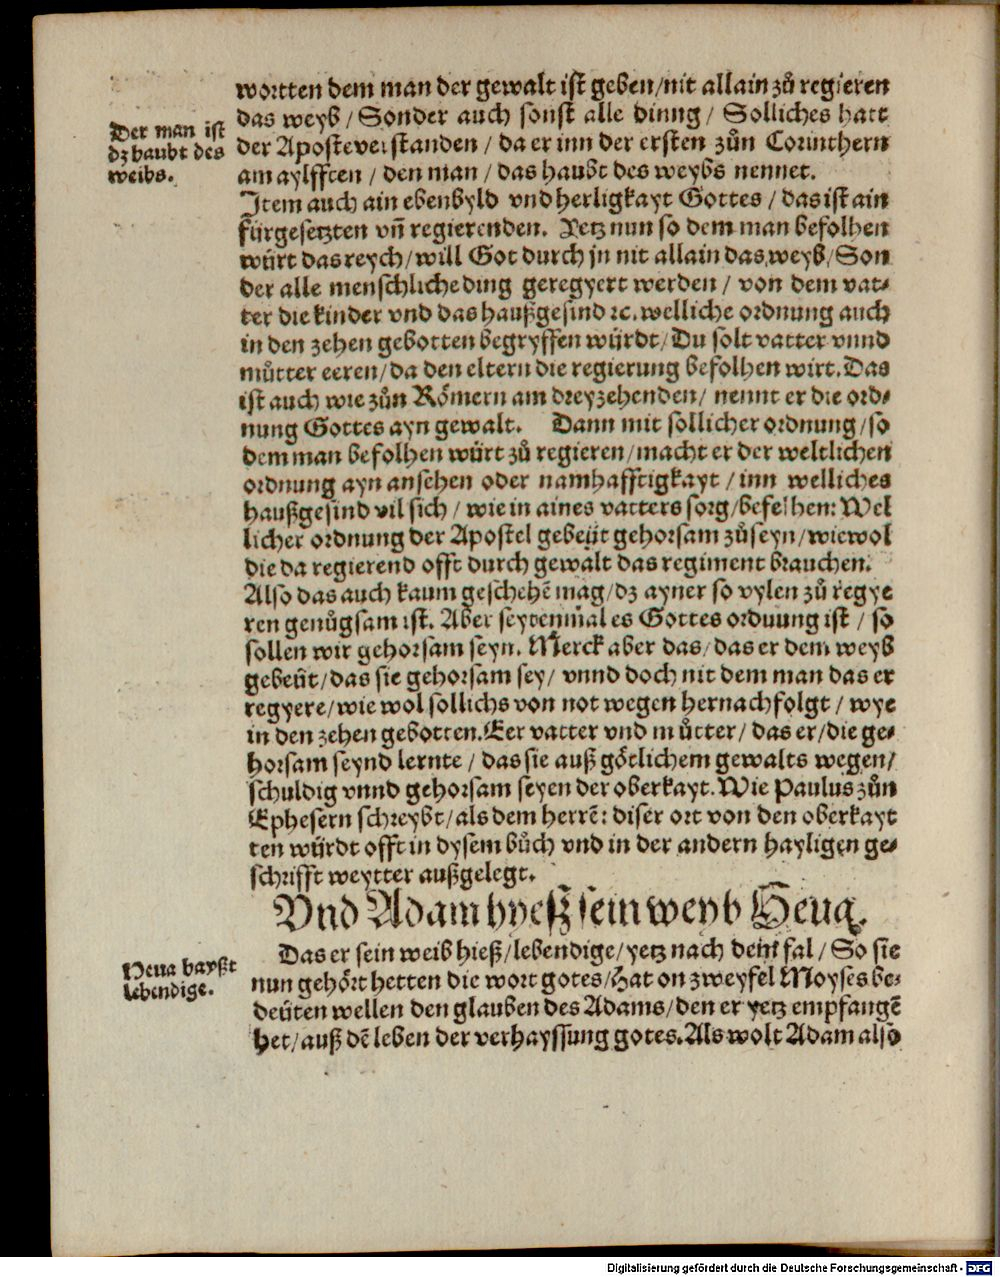 wortten dem man der gewalt ist geben/nit allain zů regieren
das weyb / Sonder auch sonst alle dinng / Solliches hatt
der Aposteverstanden / da er inn der ersten zůn Corinthern
am aylfften / den man / das haubt des weybs nennet.
Der man ist
dz haubt des
weibs.
Item auch ain ebenbyld vnd herligkayt Gottes / das ist ain
fürgesetzten vñ regierenden. Yetz nun so dem man befolhen
würt das reych/will Got durch jn nit allain das weyb/Son
der alle menschliche ding geregyert werden / von dem vat-
ter die kinder vnd das haußgesind ꝛc. welliche ordnung auch
in den zehen gebotten begryffen würdt/Du solt vatter vnnd
můtter eeren/da den eltern die regierung befolhen wirt. Das
ist auch wie zůn Römern am dreyzehenden/ nennt er die ord-
nung Gottes ayn gewalt. Dann mit sollicher ordnung/so
dem man befolhen würt zů regieren/macht er der weltlichen
ordnung ayn ansehen oder namhafftigkayt / inn welliches
haußgesind vil sich / wie in aines vatters sorg/befelhen: Wel
licher ordnung der Apostel gebeüt gehorsam zůseyn/wiewol
die da regierend offt durch gewalt das regiment brauchen.
Also das auch kaum geschehē mag/dz ayner so vylen zů regye
ren genůgsam ist. Aber seytenmal es Gottes orduung ist / so
sollen wir gehorsam seyn. Merck aber das/das er dem weyb
gebeüt/das sie gehorsam sey/ vnnd doch nit dem man das er
regyere/wie wol sollichs von not wegen hernachfolgt / wye
in den zehen gebotten. Eer vatter vnd můtter/ das er/die ge-
horsam seynd lernte / das sie auß götlichem gewalts wegen/
schuldig vnnd gehorsam seyen der oberkayt. Wie Paulus zůn
Ephesern schreybt/als dem herrē: diser ort von den oberkayt
ten würdt offt in dysem bůch vnd in der andern hayligen ge-
schrifft weytter außgelegt.
Vnd Adam hyeß sein weyb Heua.
Das er sein weib hieß/lebendige/yetz nach dem fal/ So sie
nun gehört hetten die wort gotes/hat on zweyfel Moyses be-
deüten wellen den glauben des Adams/den er yetz empfangē
het/auß dē leben der verhayssung gotes. Als wolt Adam also
Heua hayßt
lebendige.
Digitalisierung gefördert durch die Deutsche Forschungsgemeinschaft - DFG